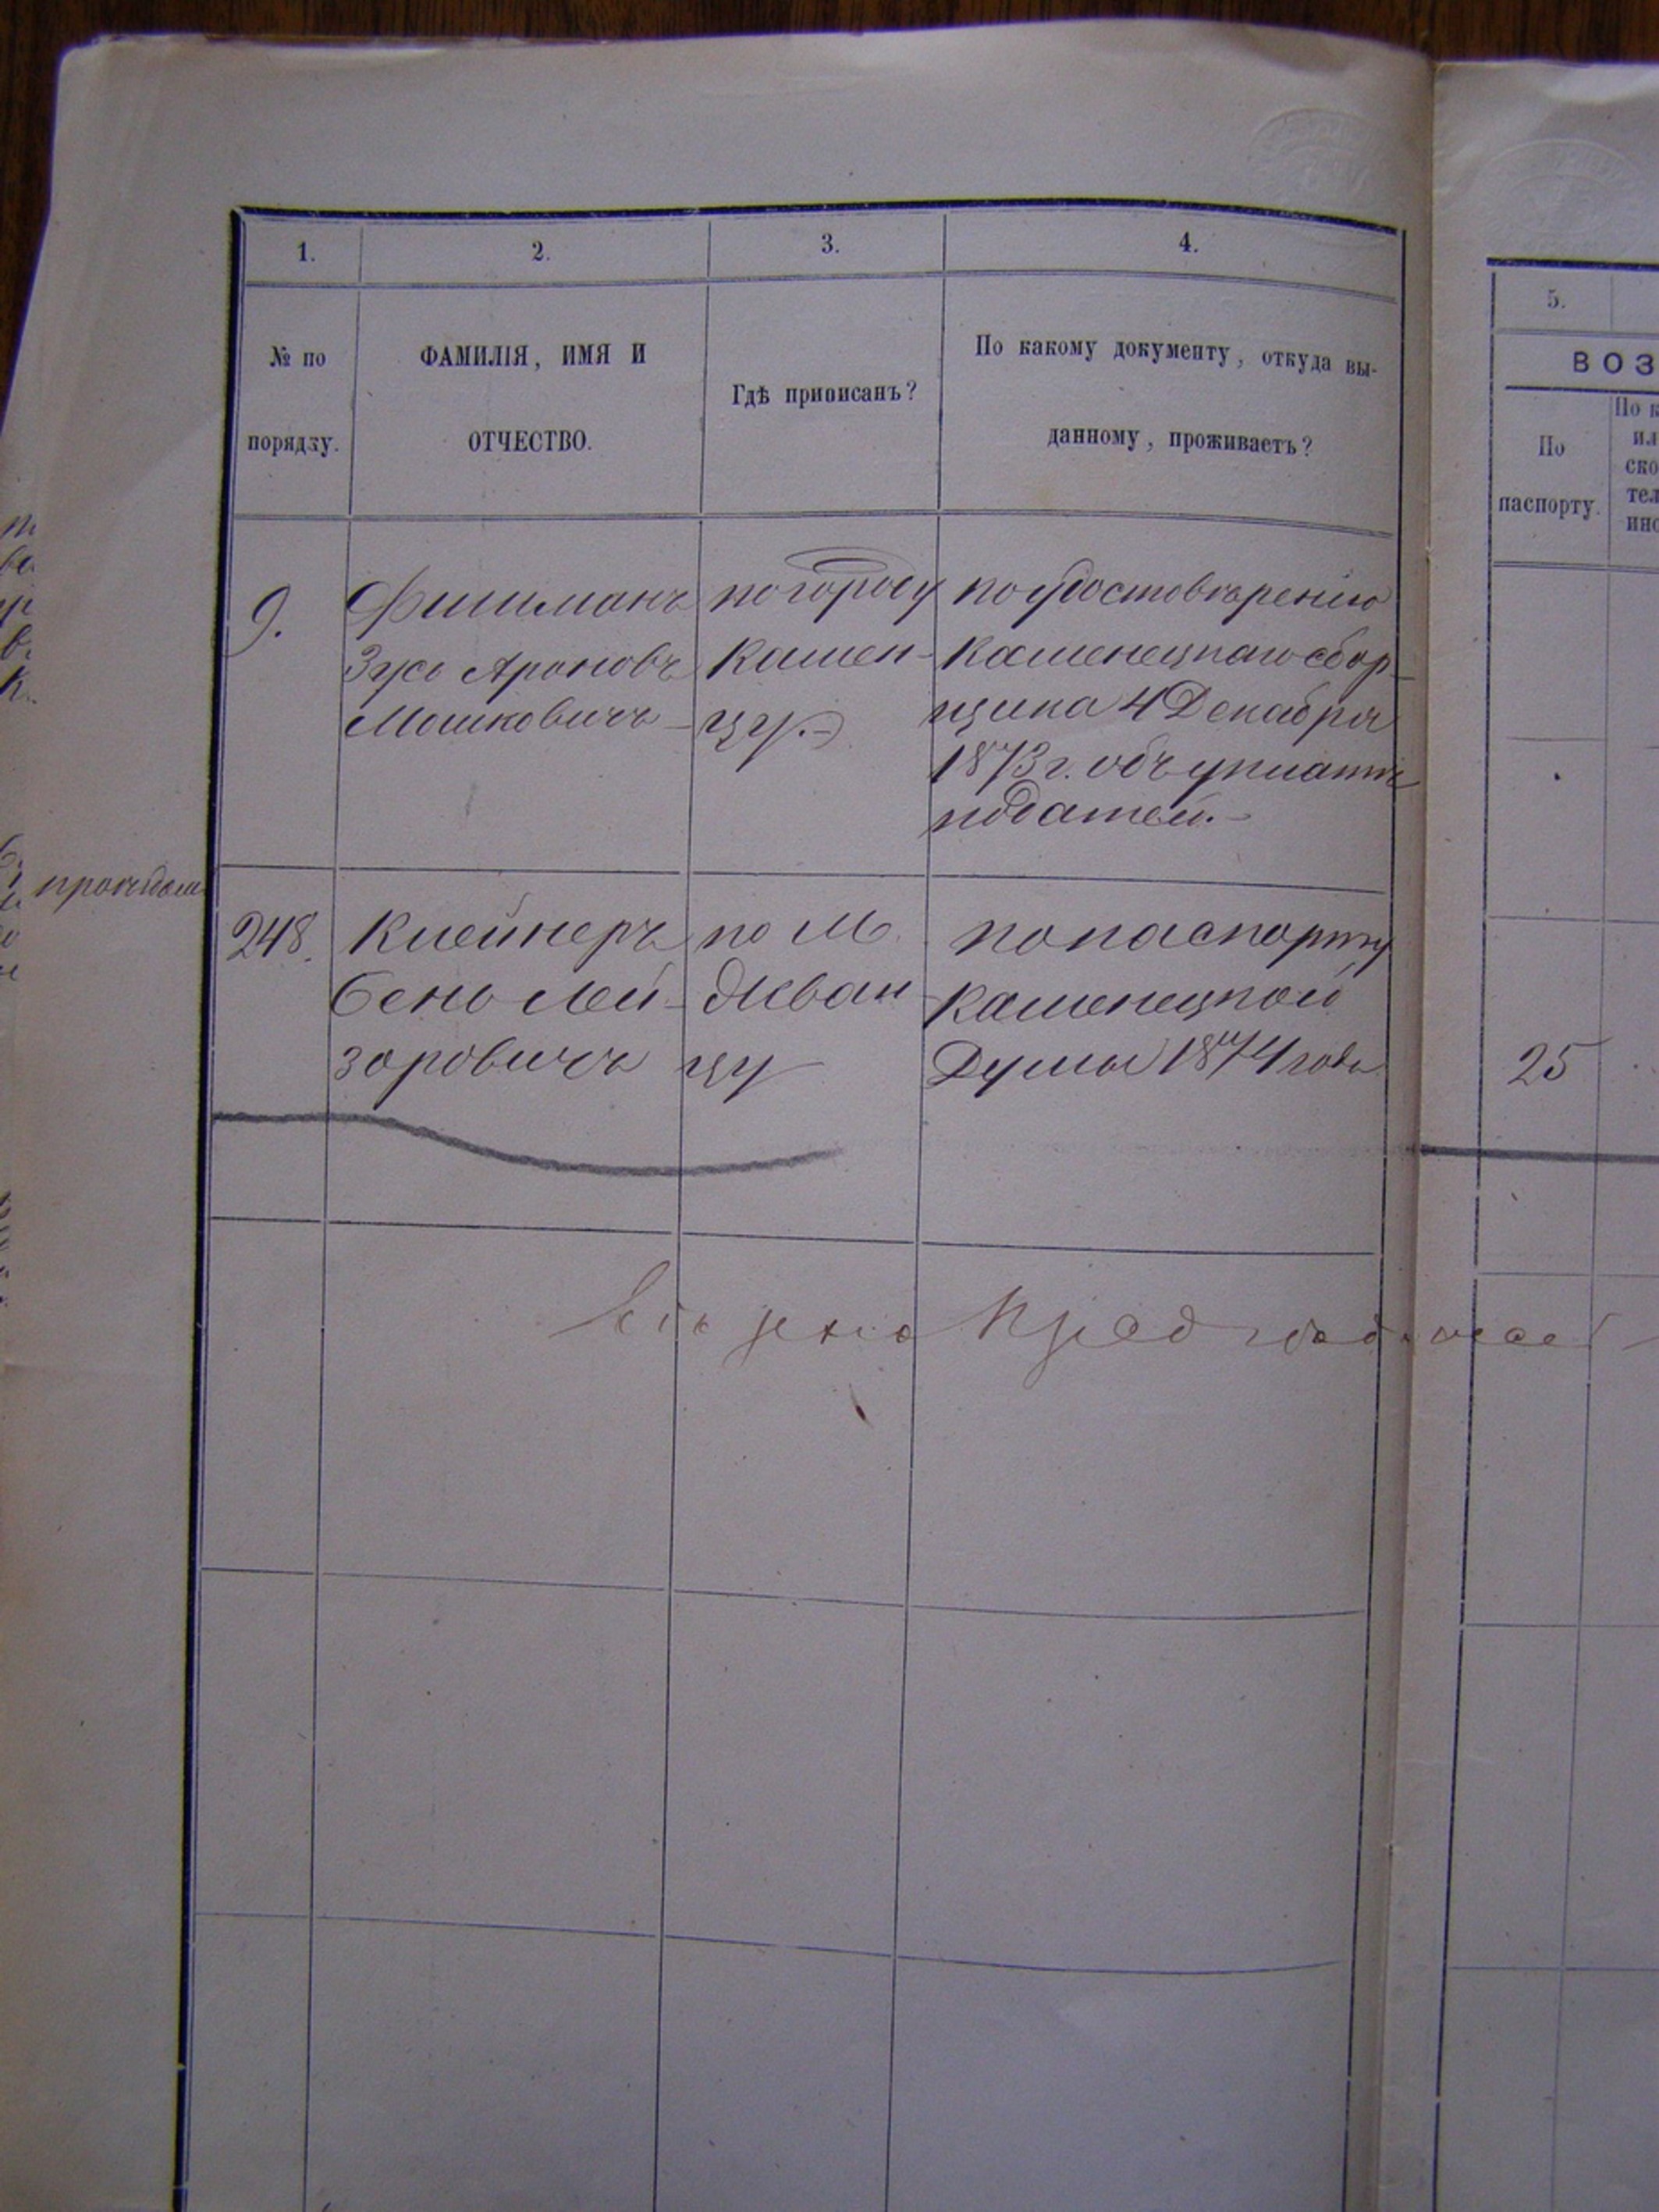 1. 2. 3. 4.
№ по порядку.
ФАМИЛІЯ, ИМЯ И
ОТЧЕСТВО.
Гдѣ приписанъ?
По какому документу, откуда вы-
данному, проживаетъ?
9.
Фишманъ
Зусь Ароновъ
Мошковичъ
по городу
Камен-
цу.
по удостовѣренію
Каменецкаго сбор-
щика 4 Декабря
1873 г. объ уплатѣ
податей.
248.
Клейнеръ
Бень Лей-
зоровичъ
по М.
Жван-
цу
по паспорту
Каменецкой
Думы 1874 года
5.
ВОЗ
По
паспорту.
По к
ил
ско
тел
ино
25